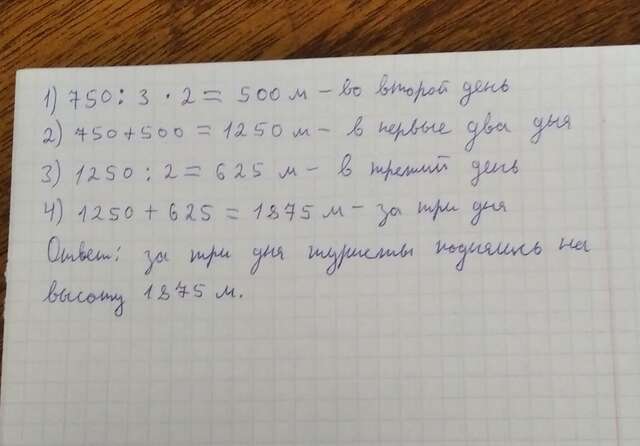 1) 750 : 3 · 2 = 500 м – во второй день
2) 750 + 500 = 1250 м – в первые два дня
3) 1250 : 2 = 625 м – в третий день
4) 1250 + 625 = 1875 м – за три дня
Ответ: за три дня туристы поднялись на
высоту 1875 м.